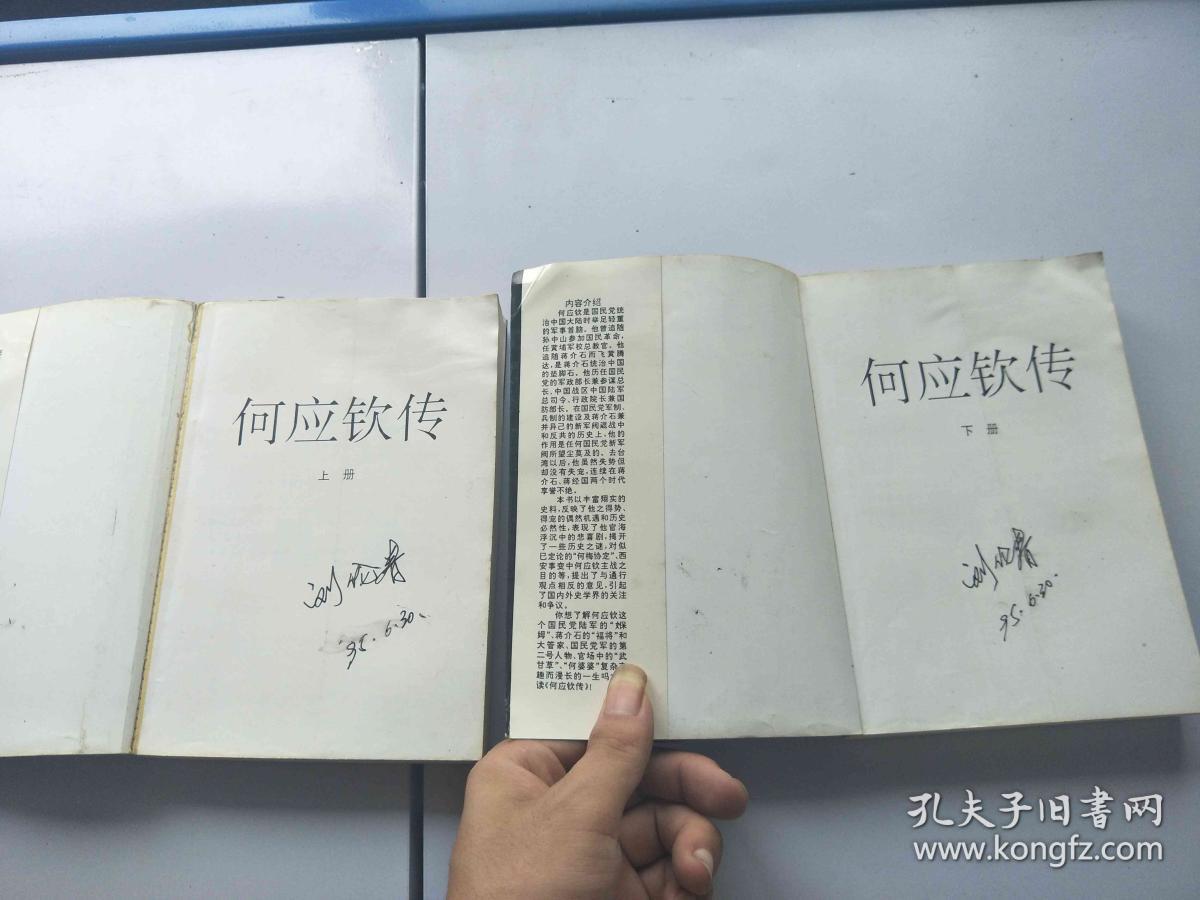 何应钦传
上册
95.6.30.
内容介绍
何应钦是国民党统
治中国大陆时举足轻重
的军事首脑。他曾追随
孙中山参加国民革命，
任黄埔军校总教官。他
追随蒋介石而飞黄腾
达，是蒋介石统治中国
的垫脚石。他历任国民
党的军政部长兼参谋总
长、中国战区中国陆军
总司令、行政院长兼国
防部长。在国民党军制、
兵制的建设及蒋介石兼
并异己的新军阀混战中
和反共的历史上，他的
作用是任何国民党新军
阀所望尘莫及的。去台
湾以后，他虽然失势但
却没有失宠，连续在蒋
介石、蒋经国两个时代
享誉不绝。
本书以丰富翔实的
史料，反映了他之得势、
得宠的偶然机遇和历史
必然性，表现了他官海
浮沉中的悲喜剧，揭开
了一些历史之谜，对似
已定论的“何梅协定”、西
安事变中何应钦主战之
目的等，提出了与通行
观点相反的意见，引起
了国内外史学界的关注
和争议。
你想了解何应钦这
个国民党陆军的“保
姆”、蒋介石的“福将”和
大管家、国民党军的第
二号人物、官场中的“武
甘草”、“何婆婆”复杂
趣而漫长的一生吗
读《何应钦传》！
何应钦传
下册
95.6.30.
孔夫子旧书网
www.kongfz.com